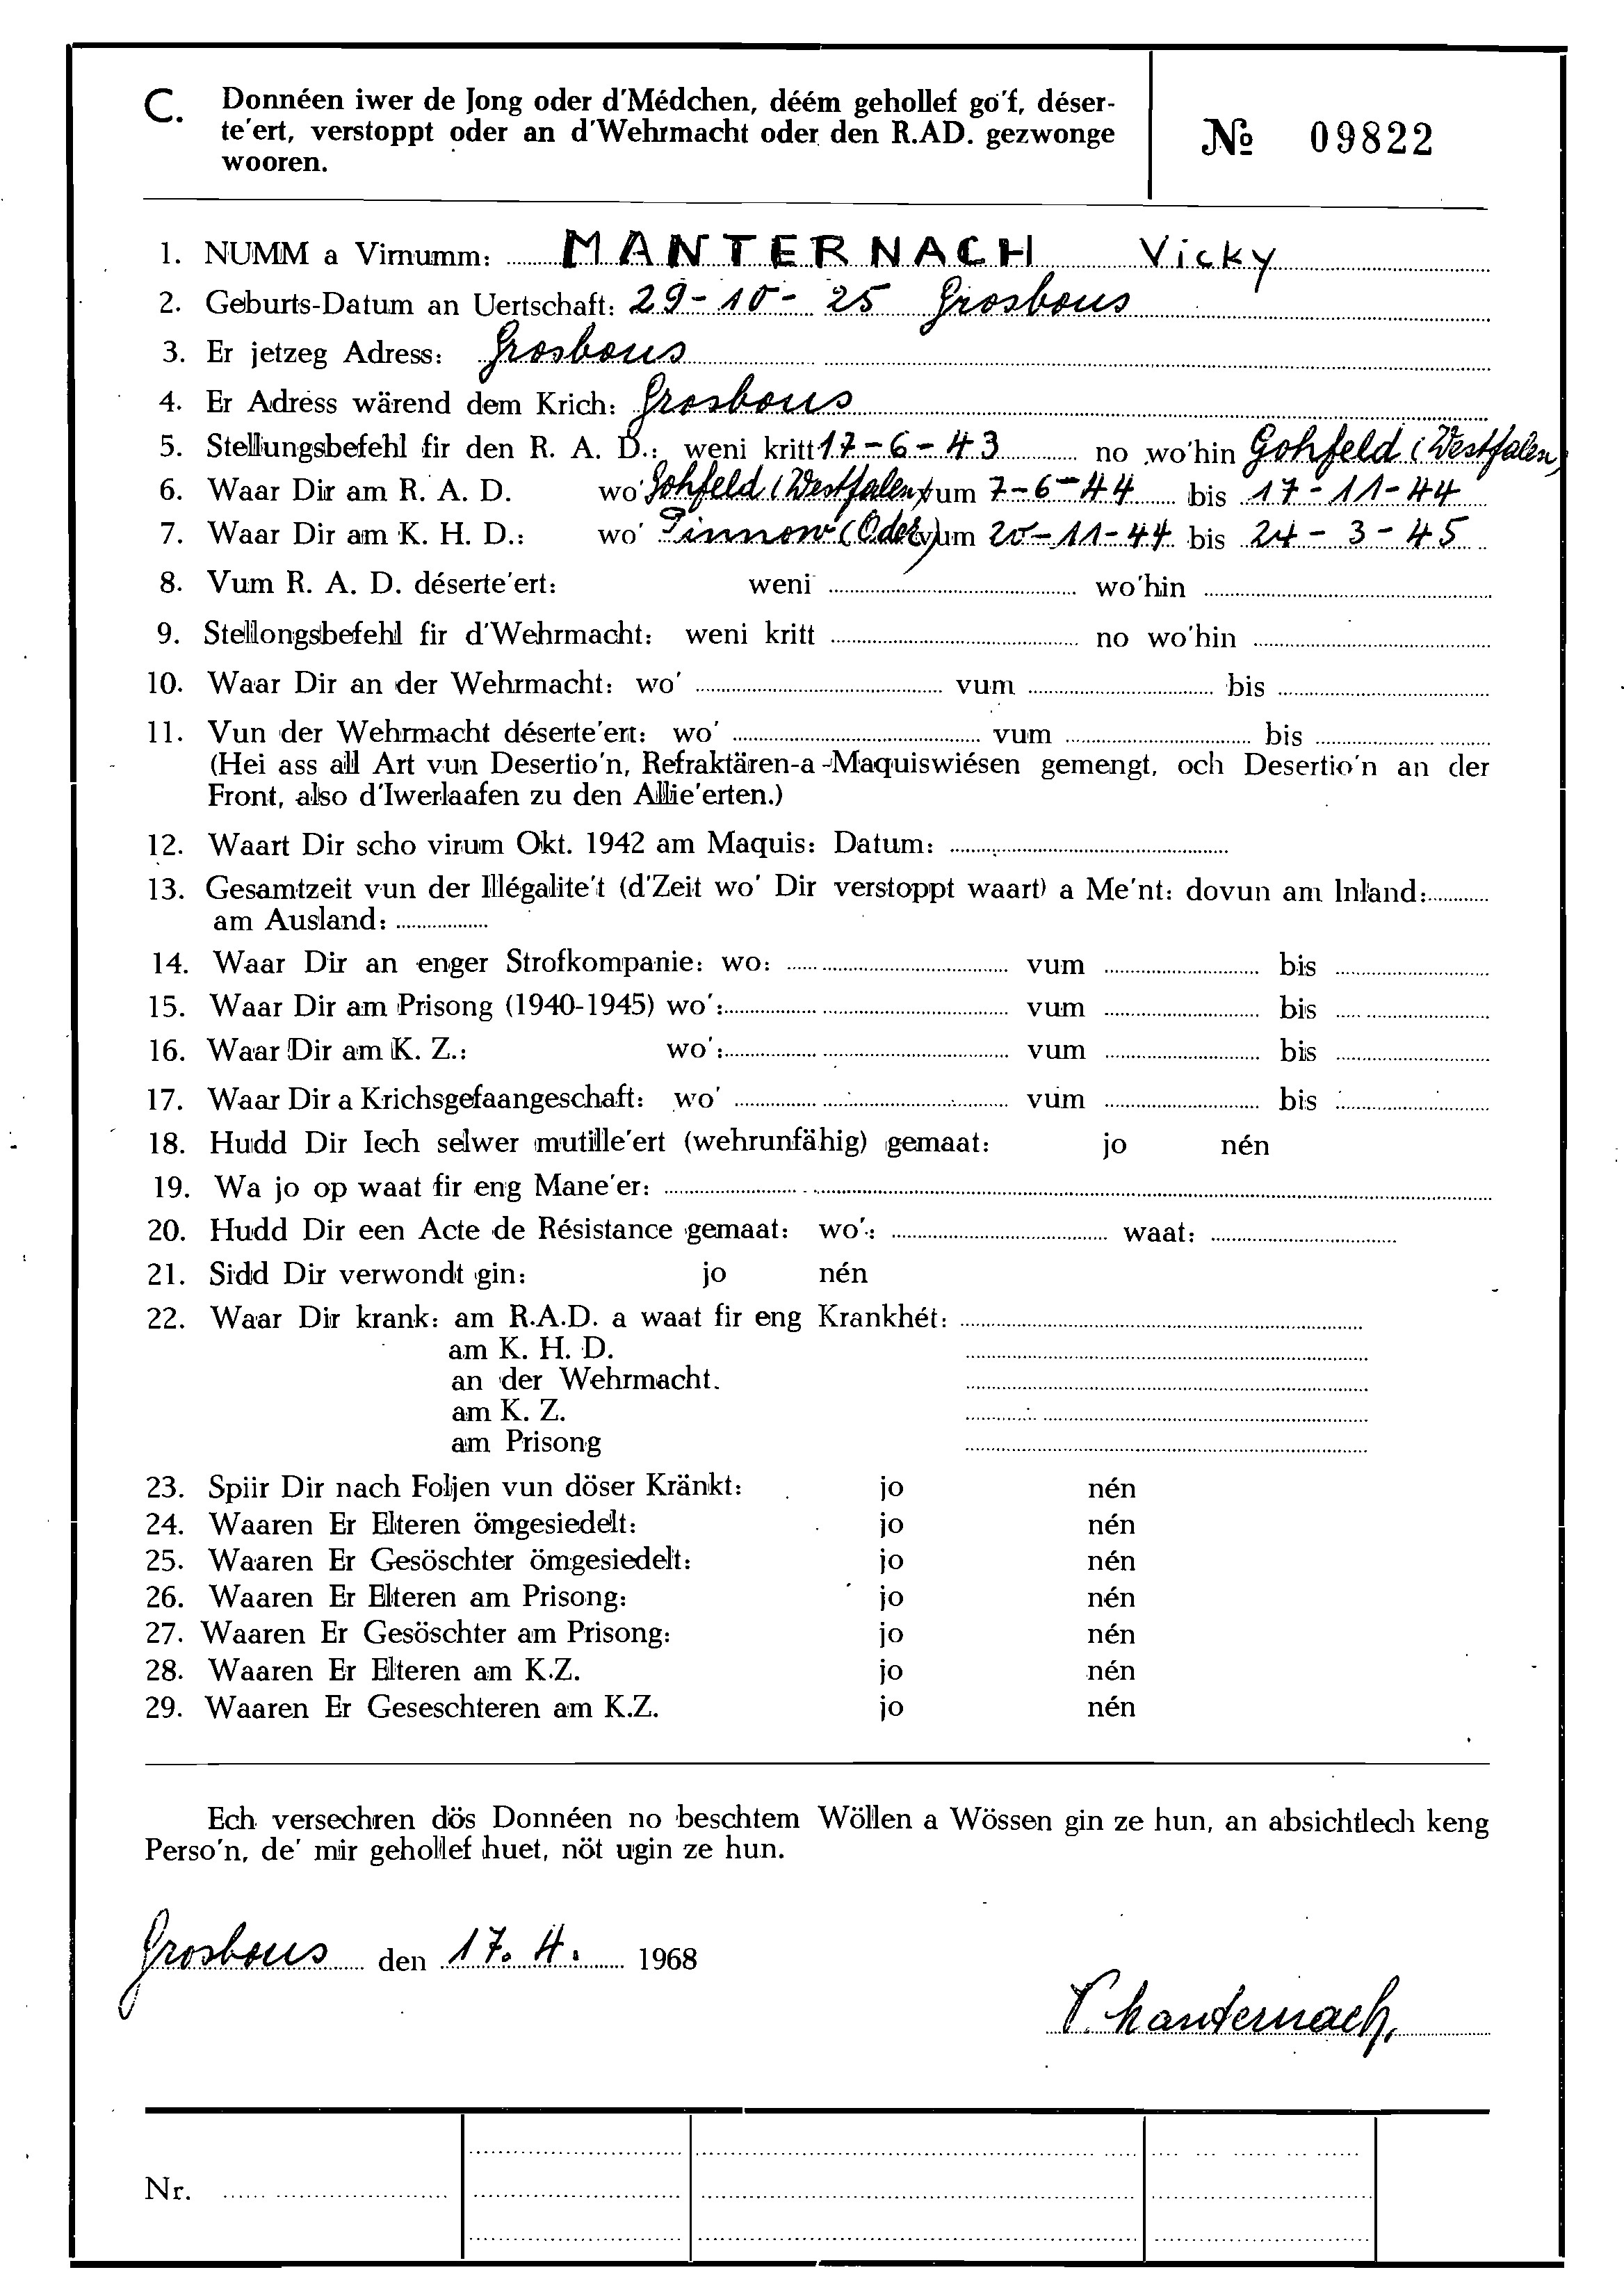 C. Donnéen iwer de Jong oder d'Médchen, déém gehollef go'f, déser-
te'ert, verstoppt oder an d'Wehrmacht oder den R.AD. gezwonge
wooren.
№ 09822
1. NUMM a Virnumm: MANTERNACH Vicky
2. Geburts-Datum an Uertschaft: 29-10-25 Grosbous
3. Er jetzeg Adress: Grosbous
4. Er Adress wärend dem Krich: Grosbous
5. Stellungsbefehl fir den R. A. D.: weni kritt 17-6-43 no wo'hin Gohfeld (Westfalen)
6. Waar Dir am R. A. D. wo' Gohfeld (Westfalen) vum 7-6-44 bis 17-11-44
7. Waar Dir am K. H. D.: wo' Pinnow (Oder) vum 20-11-44 bis 24-3-45
8. Vum R. A. D. déserte'ert: weni wo'hin
9. Stellongsbefehl fir d'Wehrmacht: weni kritt no wo'hin
10. Waar Dir an der Wehrmacht: wo' vum bis
11. Vun der Wehrmacht déserte'ert: wo' vum bis
(Hei ass all Art vun Desertio'n, Refraktären-a-Maquiswiésen gemengt, och Desertio'n an der
Front, also d'Iwerlaafen zu den Allie'erten.)
12. Waart Dir scho virum Okt. 1942 am Maquis: Datum:
13. Gesamtzeit vun der Illégalite't (d'Zeit wo' Dir verstoppt waart) a Me'nt: dovun am Inland:
am Ausland:
14. Waar Dir an enger Strofkompanie: wo: vum bis
15. Waar Dir am Prisong (1940-1945) wo': vum bis
16. Waar Dir am K. Z.: wo': vum bis
17. Waar Dir a Krichsgefaangeschaft: wo' vum bis
18. Hudd Dir Iech selwer mutille'ert (wehrunfähig) gemaat: jo nén
19. Wa jo op waat fir eng Mane'er:
20. Hudd Dir een Acte de Résistance gemaat: wo': waat:
21. Sidd Dir verwondt gin: jo nén
22. Waar Dir krank: am R.A.D. a waat fir eng Krankhét:
am K. H. D.
an der Wehrmacht.
am K. Z.
am Prisong
23. Spiir Dir nach Foljen vun döser Kränkt: jo nén
24. Waaren Er Elteren ömgesiedelt: jo nén
25. Waaren Er Gesöschter ömgesiedelt: jo nén
26. Waaren Er Elteren am Prisong: jo nén
27. Waaren Er Gesöschter am Prisong: jo nén
28. Waaren Er Elteren am K.Z. jo nén
29. Waaren Er Geseschteren am K.Z. jo nén
Ech versechren dös Donnéen no beschtem Wöllen a Wössen gin ze hun, an absichtlech keng
Perso'n, de' mir gehollef huet, nöt ugin ze hun.
Grosbous den 17. 4. 1968
V. Manternach,
Nr.